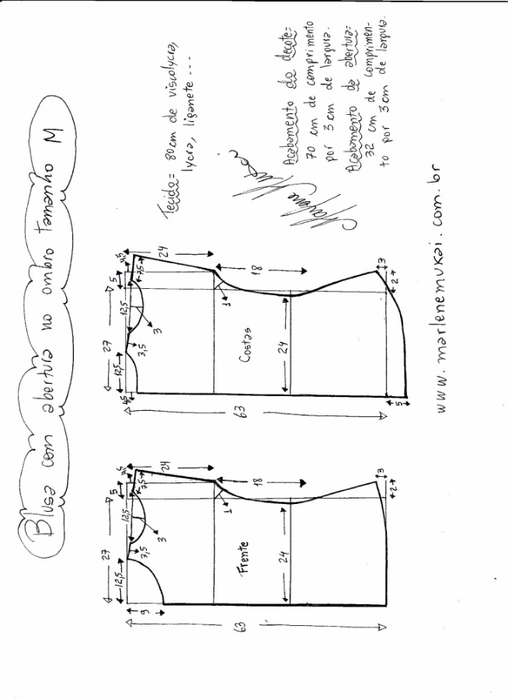 Blusa com abertura no ombro tamanho M
Tecido= 80cm de viscolycra,
lycra, liganete ...
Acabamento do decote=
70 cm de comprimento
por 3 cm de largura.
Acabamento da abertura=
32 cm de comprimen-
to por 3 cm de largura.
www.marlenemukai.com.br
Costas
63
27
12,5
12,5
5
3,5
3
7,5
24
18
1
24
3
2
5
Frente
63
27
12,5
12,5
5
3,5
3
7,5
24
18
1
24
3
2
9